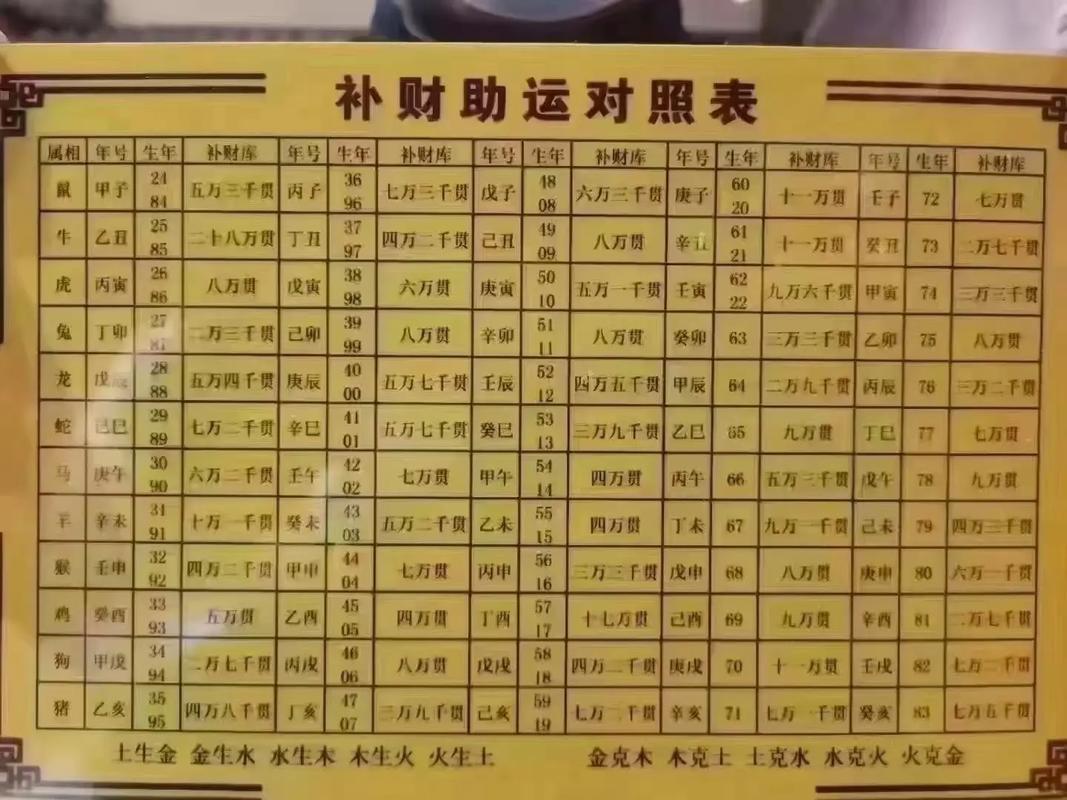 补财助运对照表
属相 年号 生年 补财库 年号 生年 补财库 年号 生年 补财库 年号 生年 补财库 年号 生年 补财库
鼠 甲子 24 84 五万三千贯 丙子 36 96 七万三千贯 戊子 48 08 六万三千贯 庚子 60 20 十一万贯 壬子 72 七万贯
牛 乙丑 25 85 二十八万贯 丁丑 37 97 四万二千贯 己丑 49 09 八万贯 辛丑 61 21 十一万贯 癸丑 73 二万七千贯
虎 丙寅 26 86 八万贯 戊寅 38 98 六万贯 庚寅 50 10 五万一千贯 壬寅 62 22 九万六千贯 甲寅 74 三万三千贯
兔 丁卯 27 87 二万三千贯 己卯 39 99 八万贯 辛卯 51 11 八万贯 癸卯 63 三万三千贯 乙卯 75 八万贯
龙 戊辰 28 88 五万四千贯 庚辰 40 00 五万七千贯 壬辰 52 12 四万五千贯 甲辰 64 二万九千贯 丙辰 76 三万二千贯
蛇 己巳 29 89 七万二千贯 辛巳 41 01 五万七千贯 癸巳 53 13 三万九千贯 乙巳 65 九万贯 丁巳 77 七万贯
马 庚午 30 90 六万二千贯 壬午 42 02 七万贯 甲午 54 14 四万贯 丙午 66 五万三千贯 戊午 78 九万贯
羊 辛未 31 91 十万一千贯 癸未 43 03 五万二千贯 乙未 55 15 四万贯 丁未 67 九万一千贯 己未 79 四万三千贯
猴 壬申 32 92 四万二千贯 甲申 44 04 七万贯 丙申 56 16 三万三千贯 戊申 68 八万贯 庚申 80 六万一千贯
鸡 癸酉 33 93 五万贯 乙酉 45 05 四万贯 丁酉 57 17 十七万贯 己酉 69 九万贯 辛酉 81 二万七千贯
狗 甲戌 34 94 二万七千贯 丙戌 46 06 八万贯 戊戌 58 18 四万二千贯 庚戌 70 十一万贯 壬戌 82 七万二千贯
猪 乙亥 35 95 四万八千贯 丁亥 47 07 三万九千贯 己亥 59 19 七万二千贯 辛亥 71 七万一千贯 癸亥 83 七万五千贯
土生金 金生水 水生木 木生火 火生土 金克木 木克土 土克水 水克火 火克金